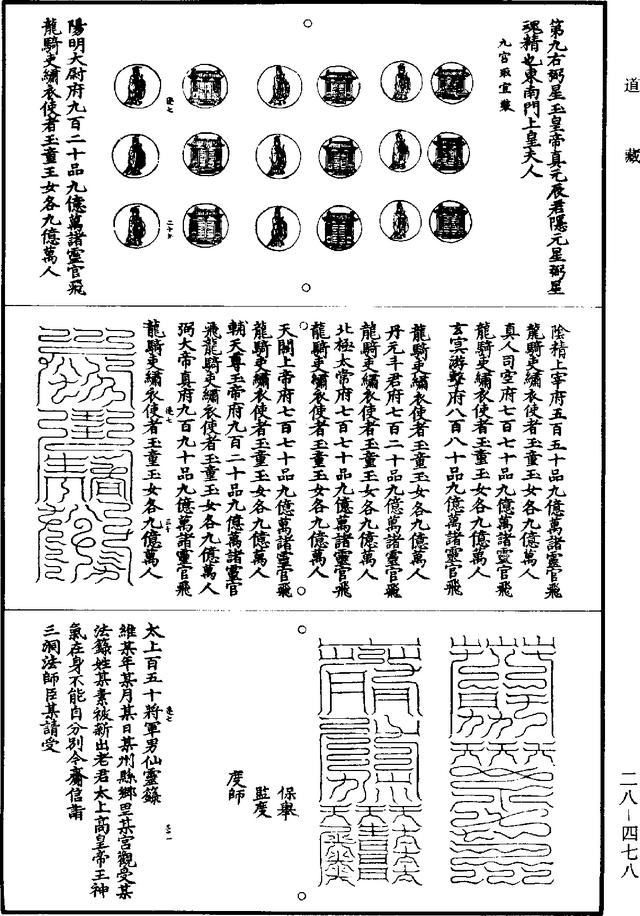 道藏
第九右弼星玉皇帝真元辰君隱元星弼星
魂精也東南門上皇夫人
九宮取宜裝
陽明大尉府九百二十品九億萬諸靈官飛
龍騎吏繡衣使者玉童玉女各九億萬人
陰精上宰府五百五十品九億萬諸靈官飛
龍騎吏繡衣使者玉童玉女各九億萬人
真人司空府七百七十品九億萬諸靈官飛
龍騎吏繡衣使者玉童玉女各九億萬人
玄冥游擊府八百八十品九億萬諸靈官飛
龍騎吏繡衣使者玉童玉女各九億萬人
丹元斗君府七百二十品九億萬諸靈官飛
龍騎吏繡衣使者玉童玉女各九億萬人
北極太常府七百七十品九億萬諸靈官飛
龍騎吏繡衣使者玉童玉女各九億萬人
天關上帝府七百七十品九億萬諸靈官飛
龍騎吏繡衣使者玉童玉女各九億萬人
輔天尊玉帝府九百二十品九億萬諸靈官
飛龍騎吏繡衣使者玉童玉女各九億萬人
弼大帝真府九百九十品九億萬諸靈官飛
龍騎吏繡衣使者玉童玉女各九億萬人
保舉
監度
度師
太上百五十將軍男仙靈籙
維某年某月某日某州縣鄉里某宮觀受某
法籙姓某素被新出老君太上高皇帝王神
氣在身不能自分別今齎信詣
三洞法師臣某請受
二八-四七八